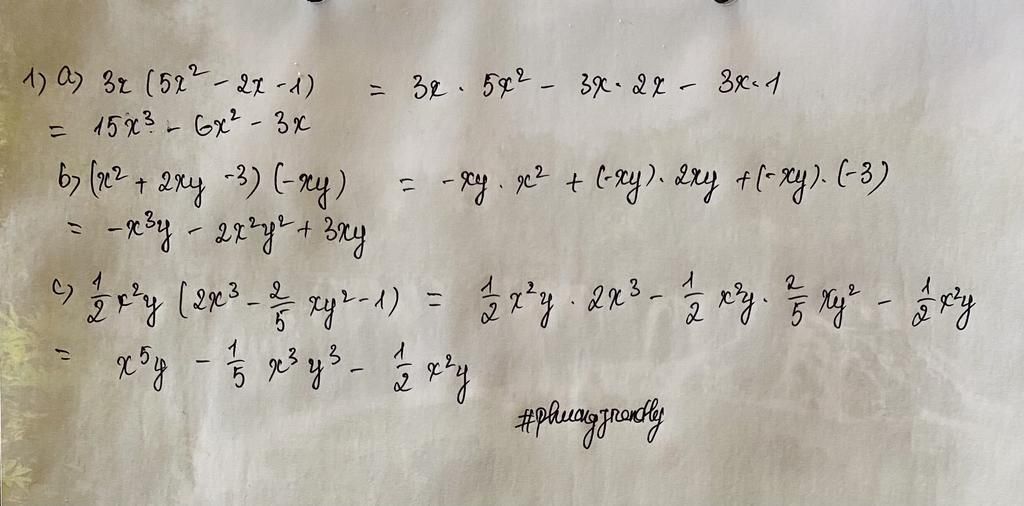 1) a) 3x (5x² - 2x - 1) = 3x · 5x² - 3x · 2x - 3x · 1
= 15x³ - 6x² - 3x
b) (x² + 2xy - 3) (-xy) = -xy · x² + (-xy) · 2xy + (-xy) · (-3)
= -x³y - 2x²y² + 3xy
c) 1/2 x²y (2x³ - 2/5 xy² - 1) = 1/2 x²y · 2x³ - 1/2 x²y · 2/5 xy² - 1/2 x²y
= x⁵y - 1/5 x³y³ - 1/2 x²y